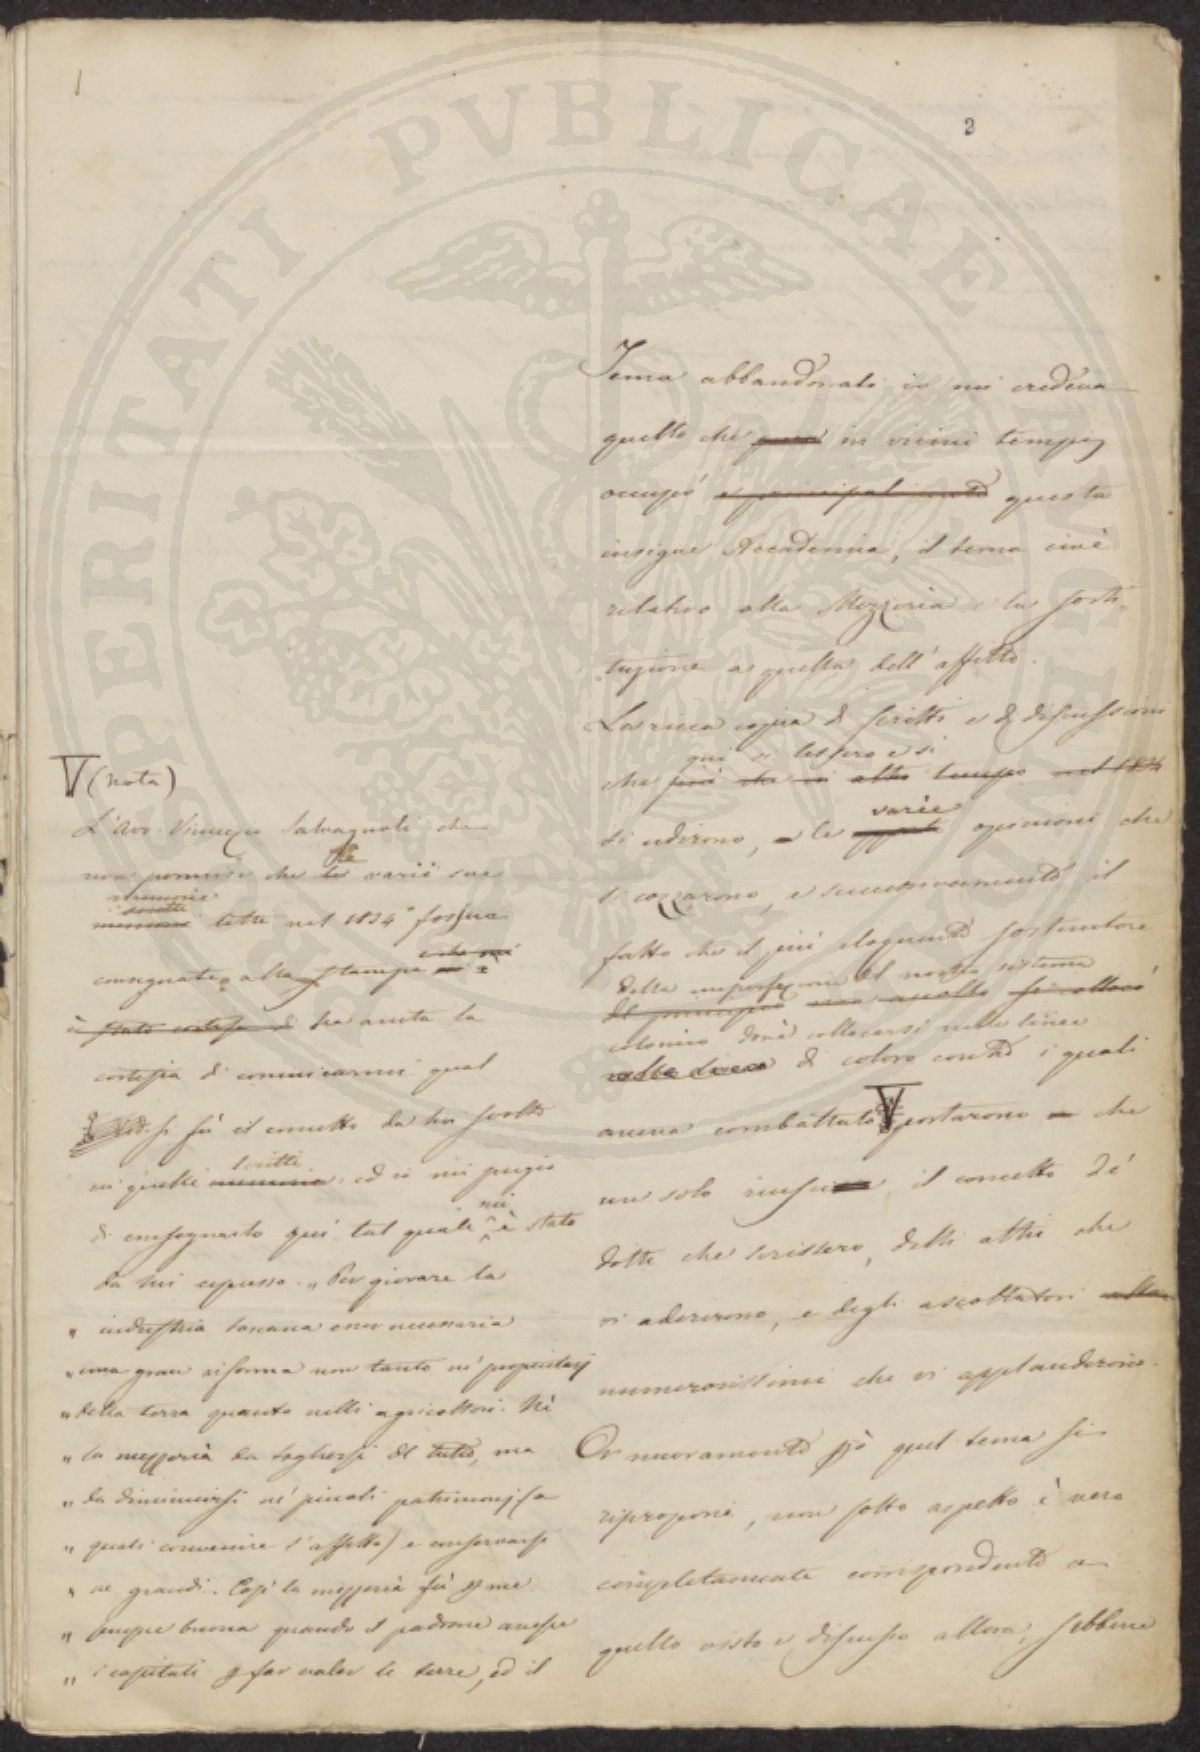 PROSPERITATI PVBLICAE AVGENDAE
2
Tema abbandonato io mi credeva
quello che in vicini tempi
occupò e principalmente questa
insigne Accademia, il tema cioè
relativo alla Mezzeria e la sosti-
tuzione a quella dell'affitto.
La ricca copia di scritti e di discussioni
qui si lessero e si
che più che in altro tempo nel 1834
varie
si udirono, le opinioni che
si cozzarono, e successivamente il
fatto che il più eloquente sostenitore
della imperfezione del nostro sistema
del principio non ascolto si collocò
colonico dovè collocarsi nelle linee
nelle linee di coloro contro i quali
aveva combattuto V portarono che
un solo il concetto de'
dotti che scrissero, delli altri che
vi aderirono, e degli ascoltatori
numerosissimi che vi applaudirono.
Or nuovamente però quel tema si
ripropone, non sotto aspetto è vero
completamente corrispondente a
quello visto e discusso allora, sebbene
V (nota)
L'Avv. Vincenzio Salvagnoli che
non permise che le varie sue
memorie
scritti
memorie lette nel 1834 fossero
consegnate alla stampa
è stato cortese di ha avuta la
cortesia di comunicarmi qual
si fu il concetto da lui svolto
scritti
in quelli memorie, ed io mi pregio
mi
di consegnarlo qui tal quale è stato
da lui espresso. „ Per giovare la
„ industria toscana esser necessaria
„ una gran riforma non tanto ne' proprietarj
„ della terra quanto nelli agricoltori. Nè
„ la mezzeria da togliersi del tutto, ma
„ da diminuirsi ne' piccoli patrimonj (a
„ quali convenire l'affitto) e conservarsi
„ ne grandi. Così la mezzeria fu p me
„ sempre buona quando il padrone avesse
„ i capitali p far valer le terre, ed il